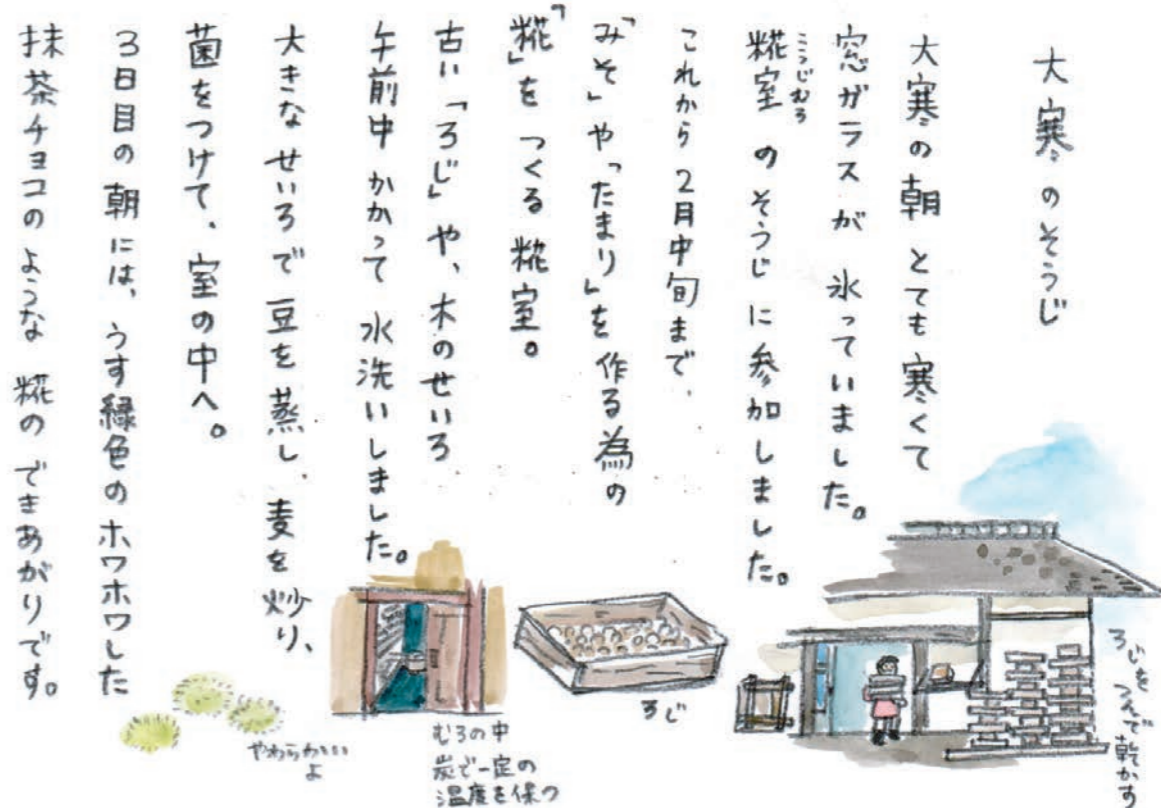 大寒のそうじ
大寒の朝 とても寒くて
窓ガラスが 氷っていました。
糀室のそうじに参加しました。
こうじむろ
これから2月中旬まで、
「みそ」や「たまり」を作る為の
「糀」をつくる糀室。
古い「ろじ」や、木のせいろ
午前中かかって 水洗いしました。
大きなせいろで豆を蒸し、麦を炒り、
菌をつけて、室の中へ。
3日目の朝には、うす緑色のホワホワした
抹茶チョコのような 糀のできあがりです。
ろじを つんで乾かす
ろじ
むろの中
炭で一定の
温度を保つ
やわらかいよ